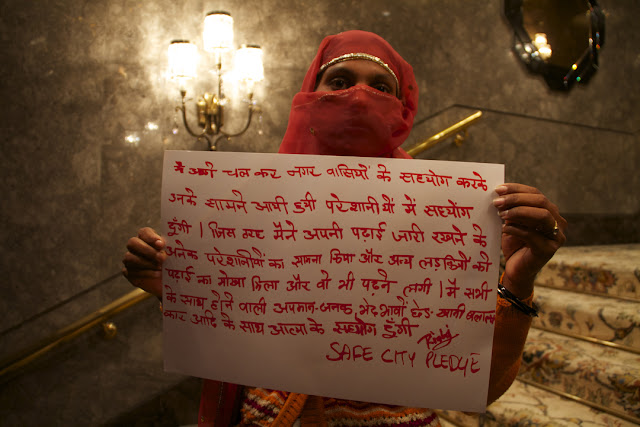 * आगे चल कर नगर वासियों के सहयोग करके
उनके सामने आयी हुयी परेशानीयों में सहयोग
दूँगी । जिस तरह मैंने अपनी पढ़ाई जारी रखने के
अनेक परेशानीयों का सामना किया और अन्य लड़कियों को
पढ़ाई का मौका मिला और वो भी पढ़ने लगी । मैं सभी
के साथ होने वाली अपमान-जनक, भेद भावों छेड़-खानी बलात्
कार आदि के साथ आत्मा के सहयोग दूँगी
SAFE CITY PLEDGE